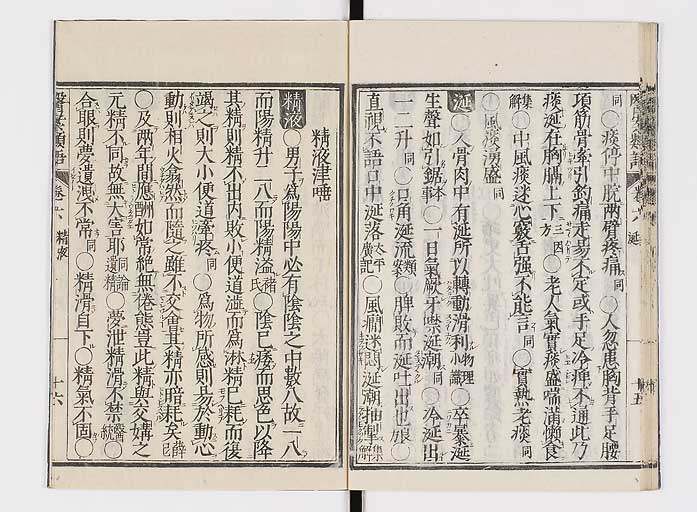 同 ○痰停中脘兩臂疼痛 同 ○人忽患胸背手足腰
項筋骨牽引釣痛走易不定或手足冷痺不通此乃
痰涎在胸膈上下 三因方 ○老人氣實痰盛喘滿懶食
集解 ○中風痰迷心竅舌强不能言 同 ○實熱老痰 同
○風痰湧盛 同
涎 ○人骨肉中有涎所以轉動滑利 物理小識 ○卒暴涎
生聲如引鋸 本事 ○一日氣厥牙噤涎潮 同 ○冷涎出
一二升 同 ○口角涎流 類案 ○脾敗而涎吐出也 ○
直視不語口中涎落 太平廣記 ○風癇迷悶涎潮抽掣 集解
精液津唾
精液 ○男子爲陽陽中必有陰陰之中數八故一八
而陽精升二八而陽精溢 褚氏 ○陰已痿而思色以降
其精則精不出内敗小便道澁而爲淋精已耗而復
竭之則大小便道牽疼 同 ○爲物所感則易於動心
動則相火翕然而隨之雖不交會其精亦暗耗矣
○及兩年間應酬如常絶無倦態豈此精與交媾之
元精不同故無大害耶 同論遺精 ○夢泄精滑不禁 醫統 ○
合眼則夢遺洩不常 同 ○精滑自下○精氣不固○
醫學類語 卷六 精液 十六